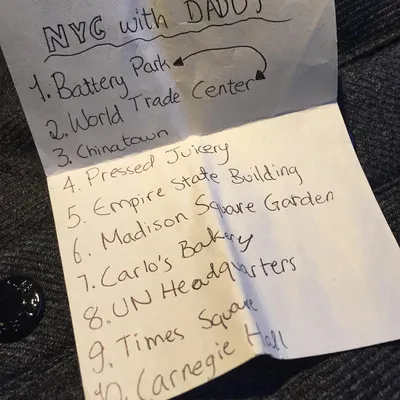 NYC with DADDY
1. Battery Park
2. World Trade Center
3. Chinatown
4. Pressed Juicery
5. Empire State Building
6. Madison Square Garden
7. Carlo's Bakery
8. UN Headquarters
9. Times Square
10. Carnegie Hall